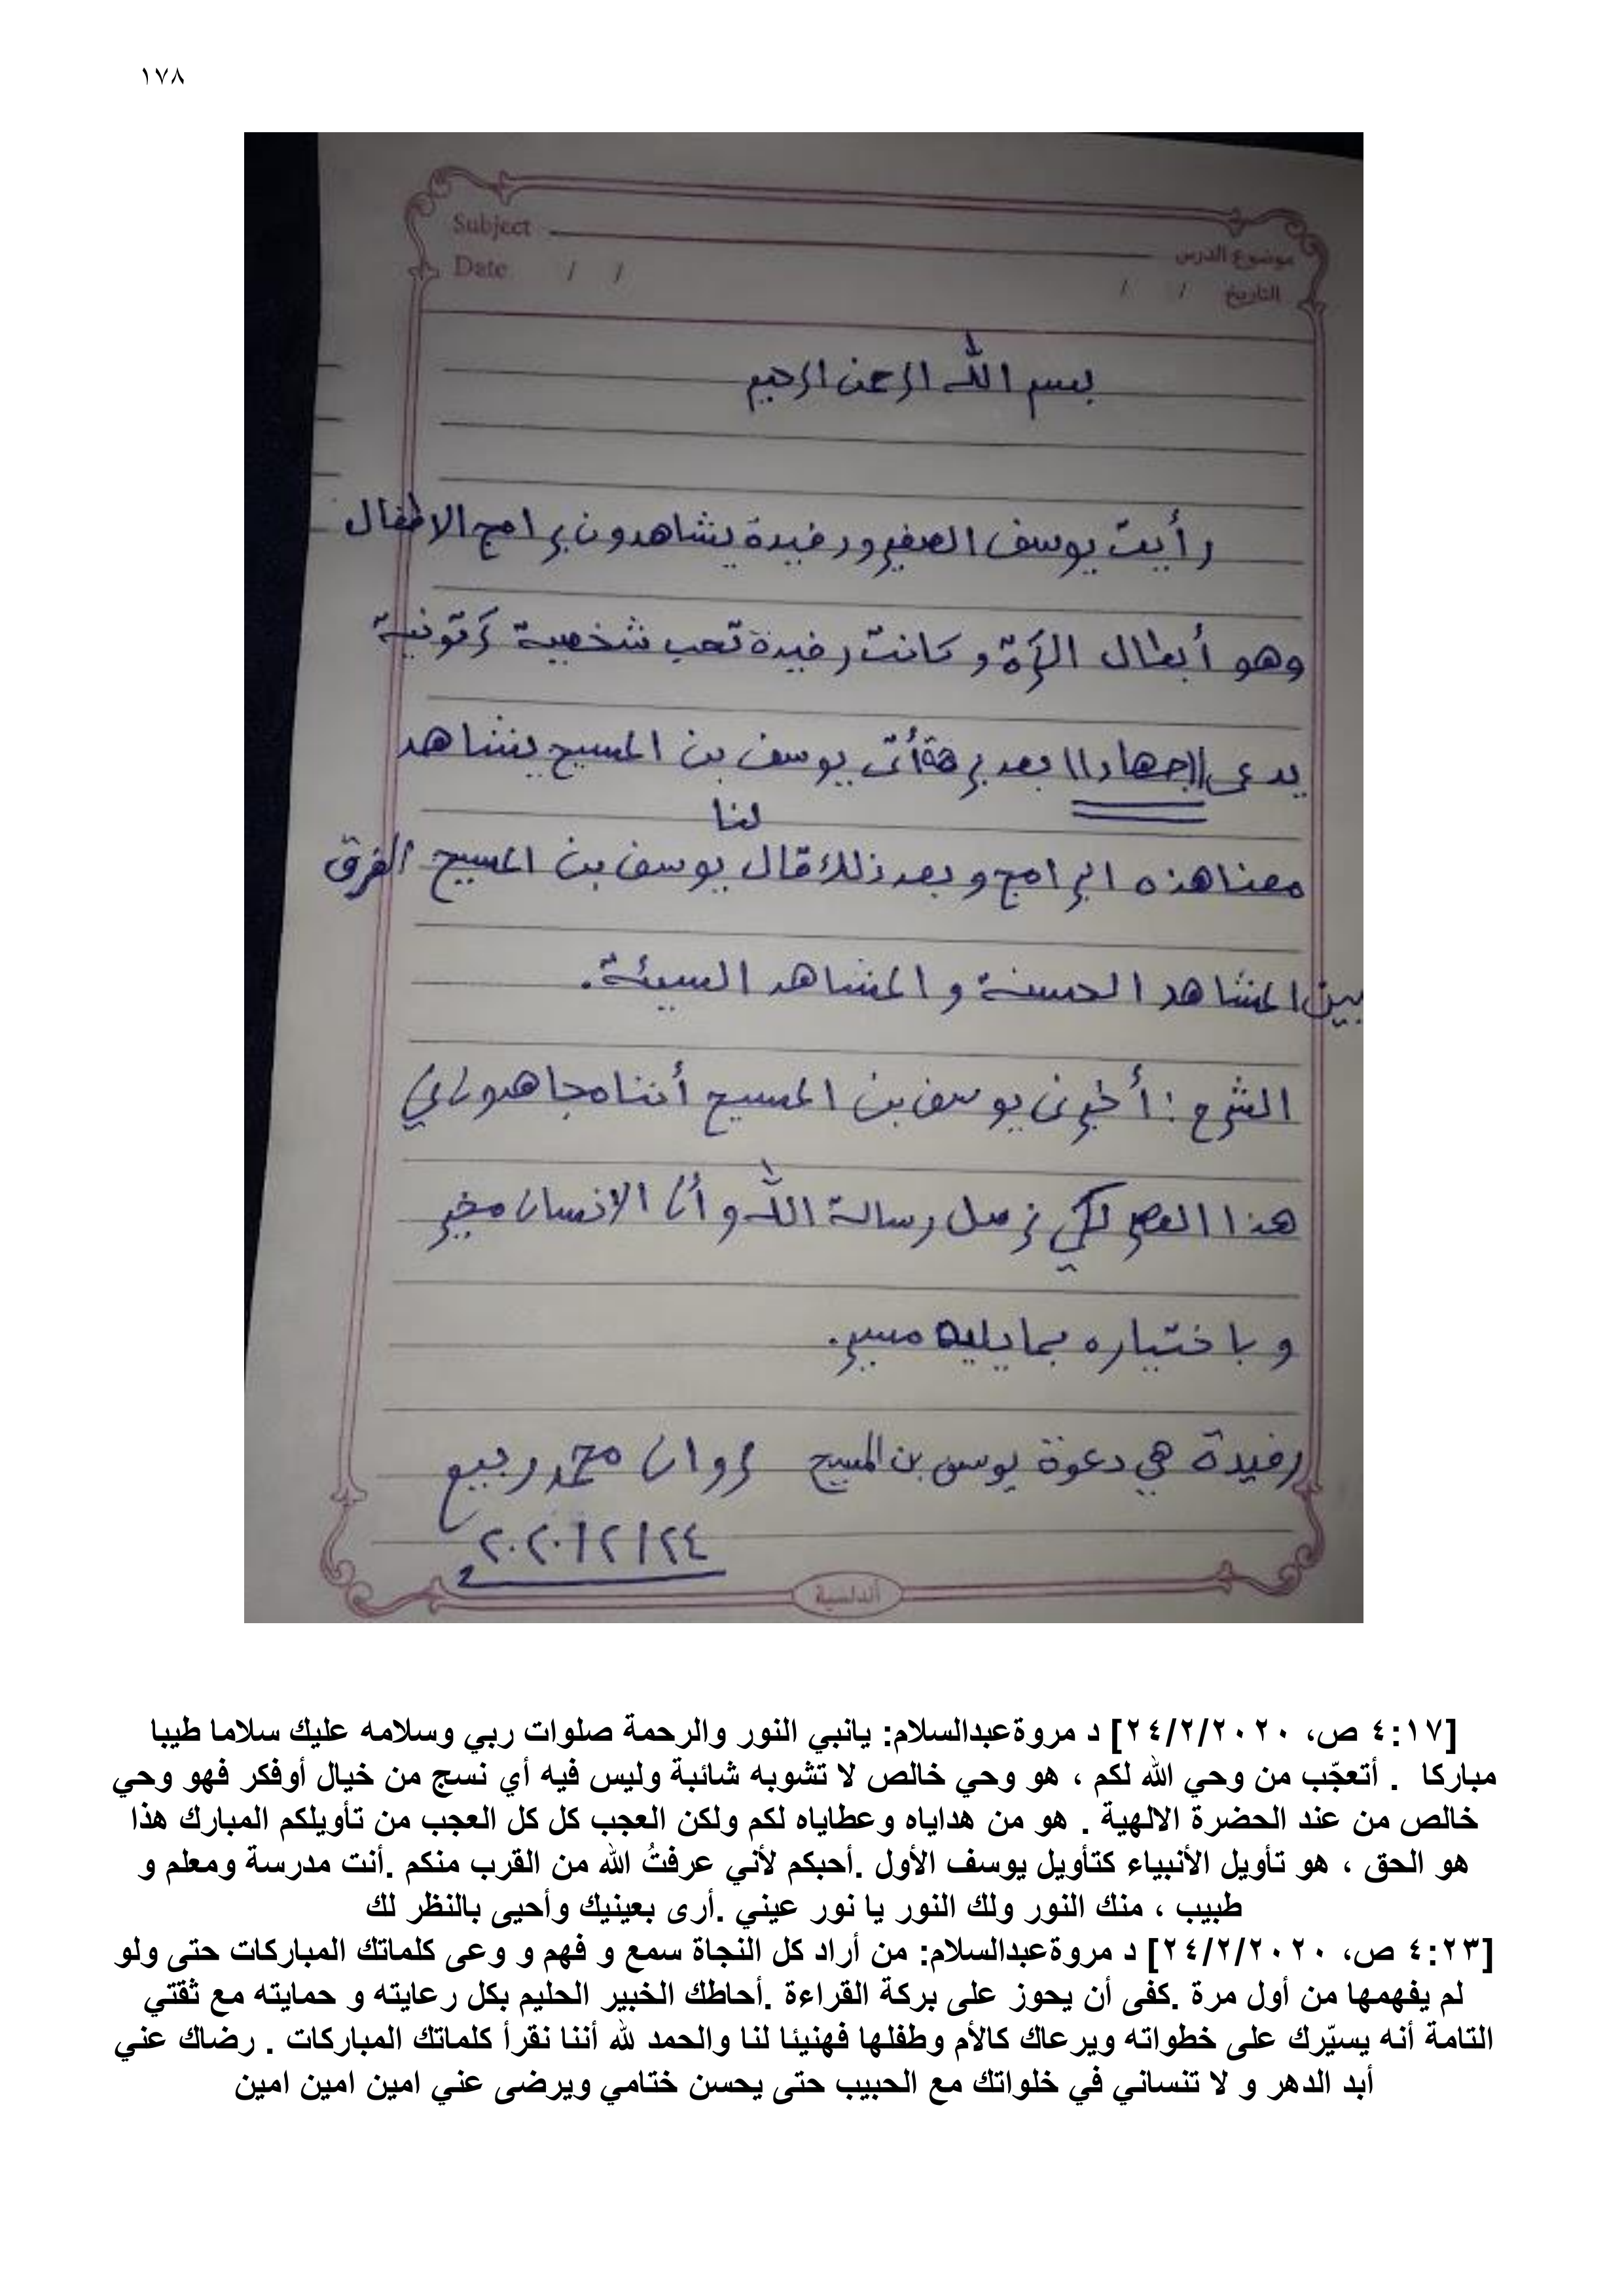 ١٧٨
Subject
موضوع الدرس
Date / /
التاريخ / /
بسم الله الرحمن الرحيم
رأيت يوسف الصغير ورفيدة يشاهدون برامج الاطفال
وهو أبطال الكرة وكانت رفيدة تحب شخصية كرتونية
يدعى "جهاد" بعد برهة أتى يوسف بن المسيح يشاهد
لنا
معنا هذه البرامج وبعد ذلك قال يوسف بن المسيح الفرق
بين المشاهد الحسنة والمشاهد السيئة.
الشرح: أخبرنى يوسف بن المسيح أننا مجاهدون في
هذا العصر لكي نرسل رسالة الله وأن الإنسان مخير
وباختياره بما يليه مسير.
رفيدة هي دعوة يوسف بن المسيح مروان محمد ربيع
٢٠٢٠/٢/٢٤
أندلسية
[٤:١٧ ص، ٢٤/٢/٢٠٢٠] د مروةعبدالسلام: يانبي النور والرحمة صلوات ربي وسلامه عليك سلاما طيبا
مباركا . أتعجّب من وحي الله لكم ، هو وحي خالص لا تشوبه شائبة وليس فيه أي نسج من خيال أوفكر فهو وحي
خالص من عند الحضرة الالهية . هو من هداياه وعطاياه لكم ولكن العجب كل كل العجب من تأويلكم المبارك هذا
هو الحق ، هو تأويل الأنبياء كتأويل يوسف الأول .أحبكم لأني عرفتُ الله من القرب منكم .أنت مدرسة ومعلم و
طبيب ، منك النور ولك النور يا نور عيني .أرى بعينيك وأحيى بالنظر لك
[٤:٢٣ ص، ٢٤/٢/٢٠٢٠] د مروةعبدالسلام: من أراد كل النجاة سمع و فهم و وعى كلماتك المباركات حتى ولو
لم يفهمها من أول مرة .كفى أن يحوز على بركة القراءة .أحاطك الخبير الحليم بكل رعايته و حمايته مع ثقتي
التامة أنه يسيّرك على خطواته ويرعاك كالأم وطفلها فهنيئا لنا والحمد لله أننا نقرأ كلماتك المباركات . رضاك عني
أبد الدهر و لا تنساني في خلواتك مع الحبيب حتى يحسن ختامي ويرضى عني امين امين امين